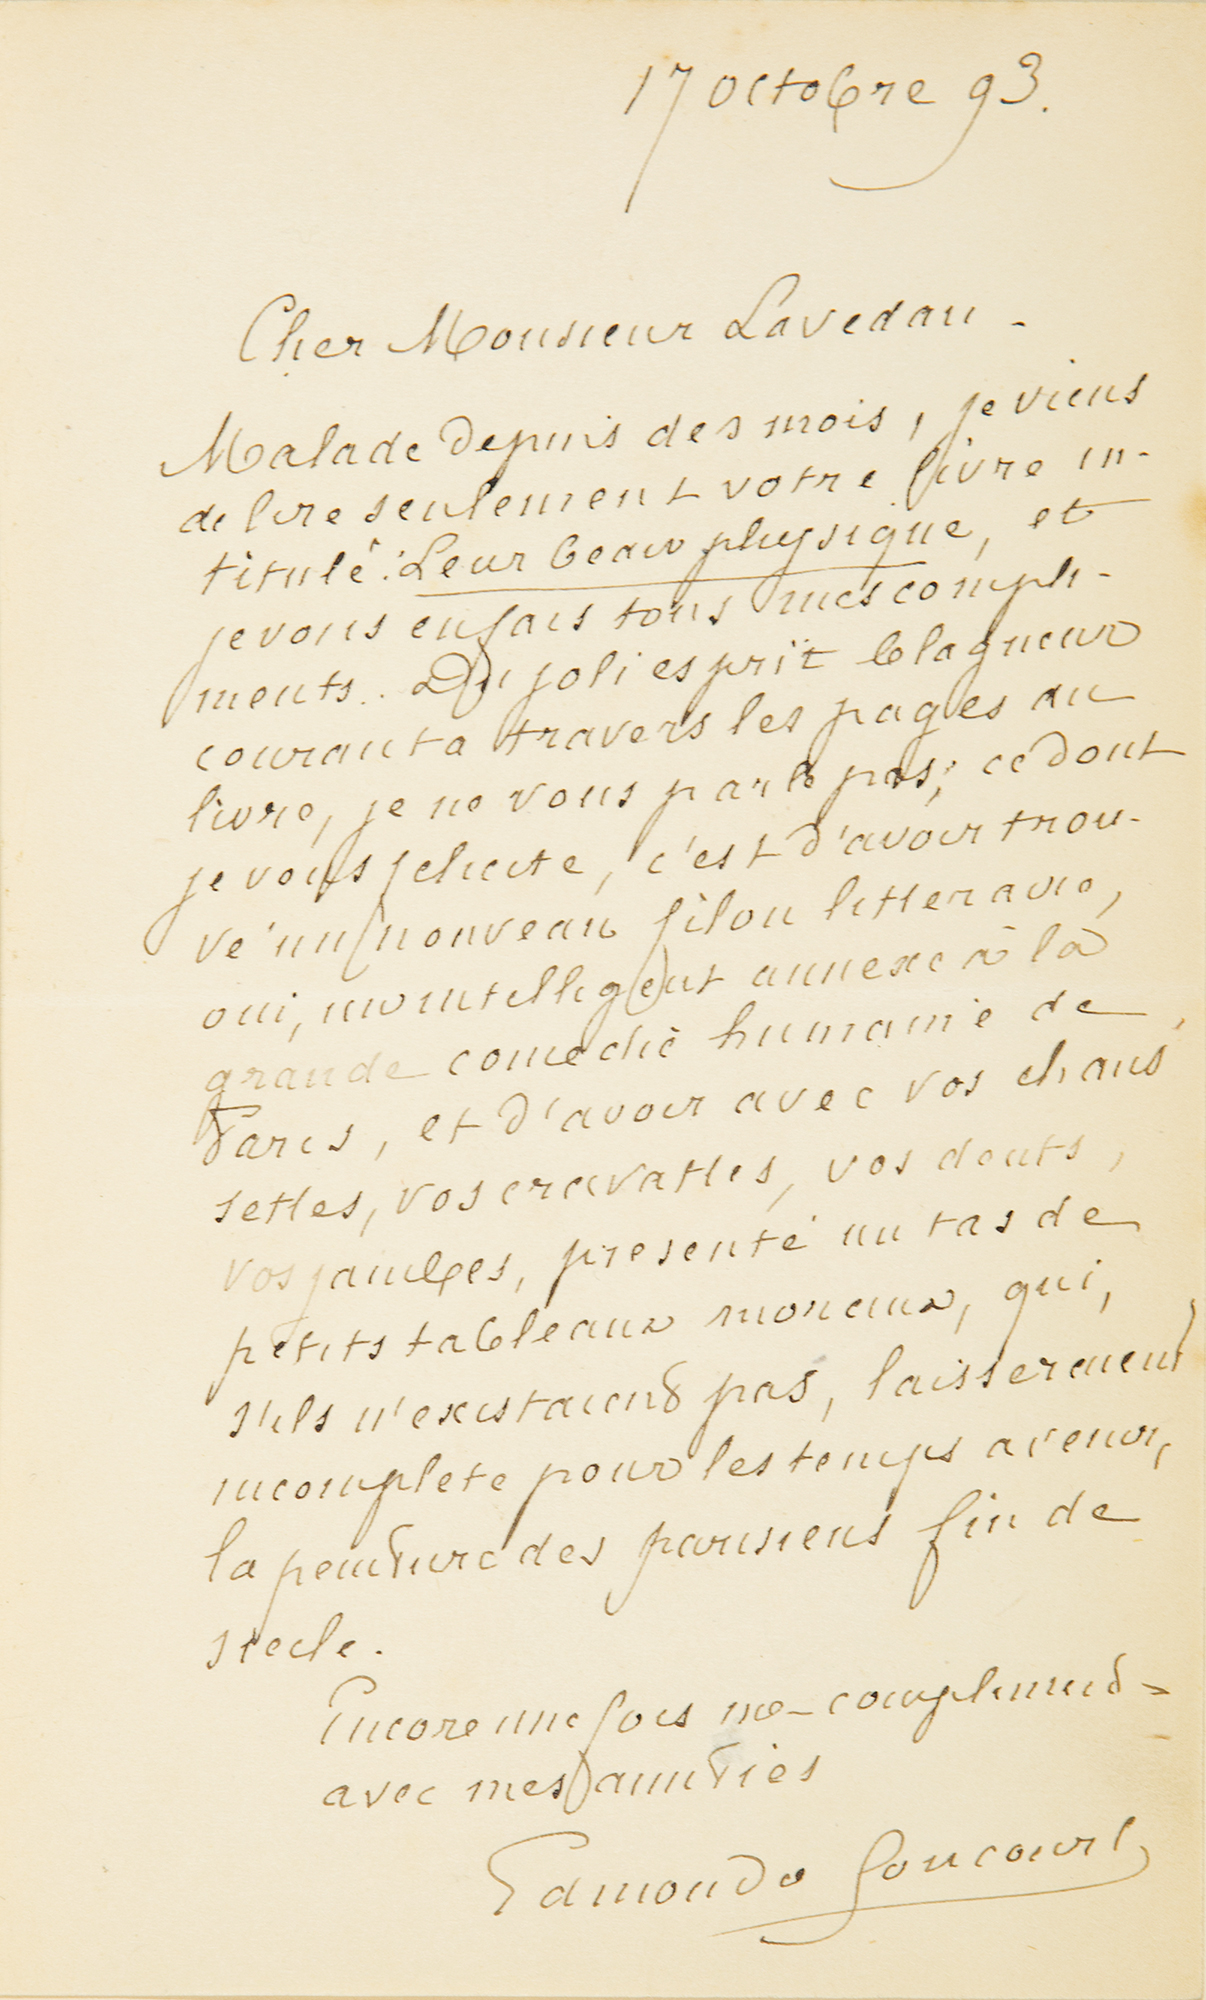 17 octobre 93.
Cher Monsieur Lavedan -
Malade depuis des mois, je viens
de lire seulement votre livre in-
titulé : Leur beau physique, et
je vous en fais tous mes compli-
ments. Du joli esprit blagueur
courant a travers les pages du
livre, je ne vous parle pas; ce dont
je vous felicite, c'est d'avoir trou-
vé un nouveau filon litteraire,
oui, un intelligent annexe à la
grande comedie humaine de
Paris, et d'avoir avec vos chaus
settes, vos cravattes, vos dents,
vos jambes, presenté un tas de
petits tableaux moraux, qui,
s'ils n'existaient pas, laisseraient
incomplete pour les temps a venir,
la peinture des parisiens fin de
siecle.
Encore une fois mes compliments
avec mes amitiés
Edmond de Goncourt